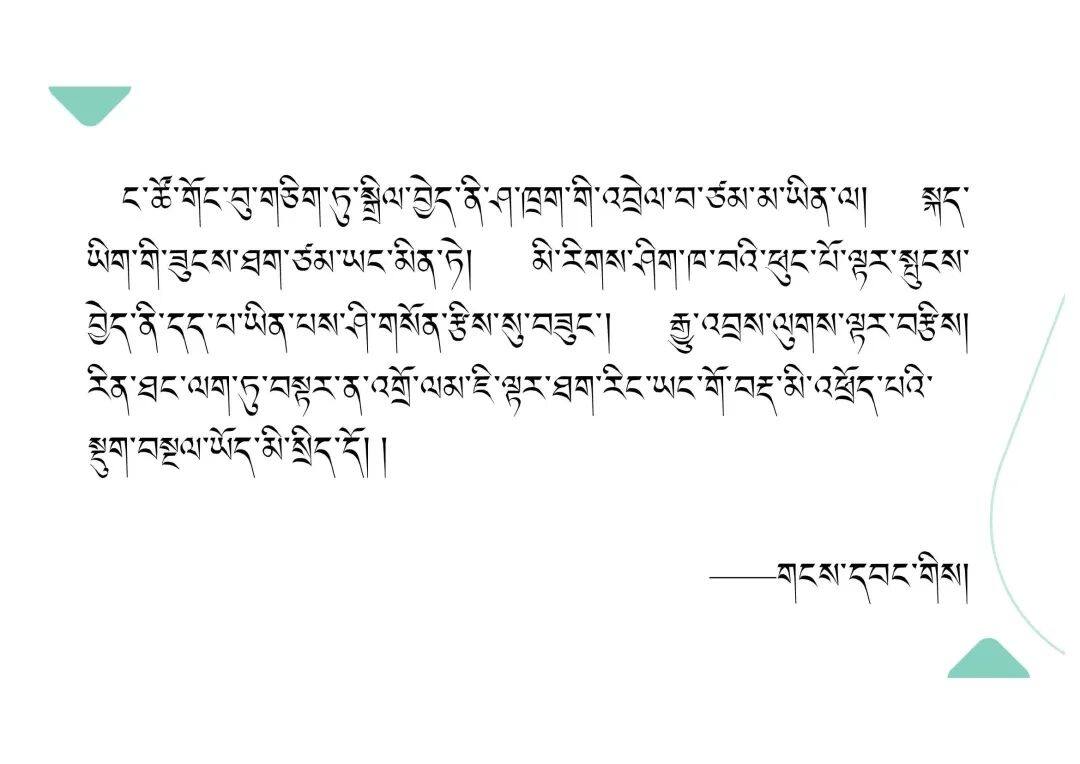 ང་ཚོ་གོང་བུ་གཅིག་ཏུ་སྒྲིལ་བྱེད་ནི་ཤ་ཁྲག་གི་འབྲེལ་བ་ཙམ་མ་ཡིན་ལ། སྐད་
ཡིག་གི་ཟུངས་ཐག་ཙམ་ཡང་མིན་ཏེ། མི་རིགས་ཤིག་ཁ་བའི་ཕུང་པོ་ལྟར་སྤུངས་
བྱེད་ནི་དད་པ་ཡིན་པས་ཤི་གསོན་རྩིས་སུ་བཟུང་། རྒྱུ་འབྲས་ལུགས་ལྟར་བརྩིས།
རིན་ཐང་ལག་ཏུ་བསྟར་ན་འགྲོ་ལམ་ཇི་ལྟར་ཐག་རིང་ཡང་གོ་བརྡ་མི་འཕྲོད་པའི་
སྡུག་བསྔལ་ཡོད་མི་སྲིད་དོ། །
——གངས་དབང་གིས།